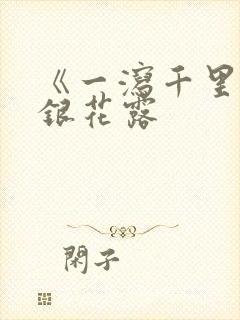 《一瀉千里
銀花露
閑子